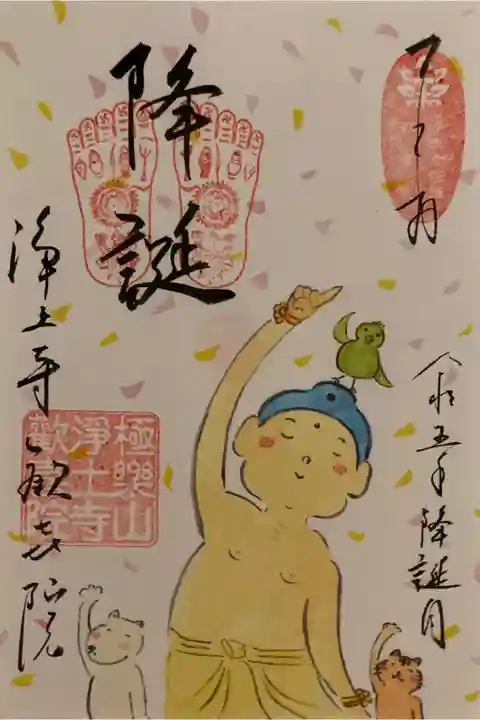 令和五年降誕月
降誕
浄土寺歓㐂院
極樂山
淨土寺
歡喜院